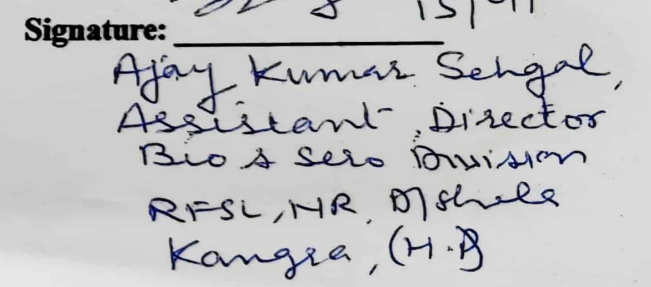 15/11
Signature:
Ajay Kumar Sehgal,
Assistant Director
Bio & Sero Division
RFSL, NR, D/shala
Kangra, (H.P)